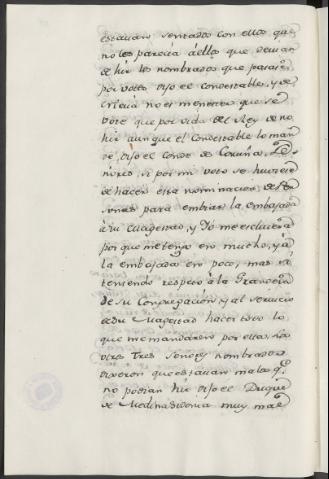 estavan sentados con ellos que
no les parecia dellos que devian
de hir los nombrados que pasase
por votos dijo el condestable, y de
Urueña no es menester que se
vote que por vida del Rey de no
hir aunque el Condestable lo man
de, dijo el Conde de Coruña, Se
ñores, si por mi voto se huviese
de hacer esta nominacion de Per
sonas para embiar la embajada
à su Magestad, y Yo me escluiera
porque me tengo en mucho, y à
la embajada en poco, mas
teniendo respeto à la Grandeza
de su Congregacion, y al servicio
de su Magestad hare todo lo
que me mandaren por ella, los
otros Tres Señores nombrados
dixeron que estavan malos q.e
no podian hir dijo el Duque
de Medinasidonia muy mal